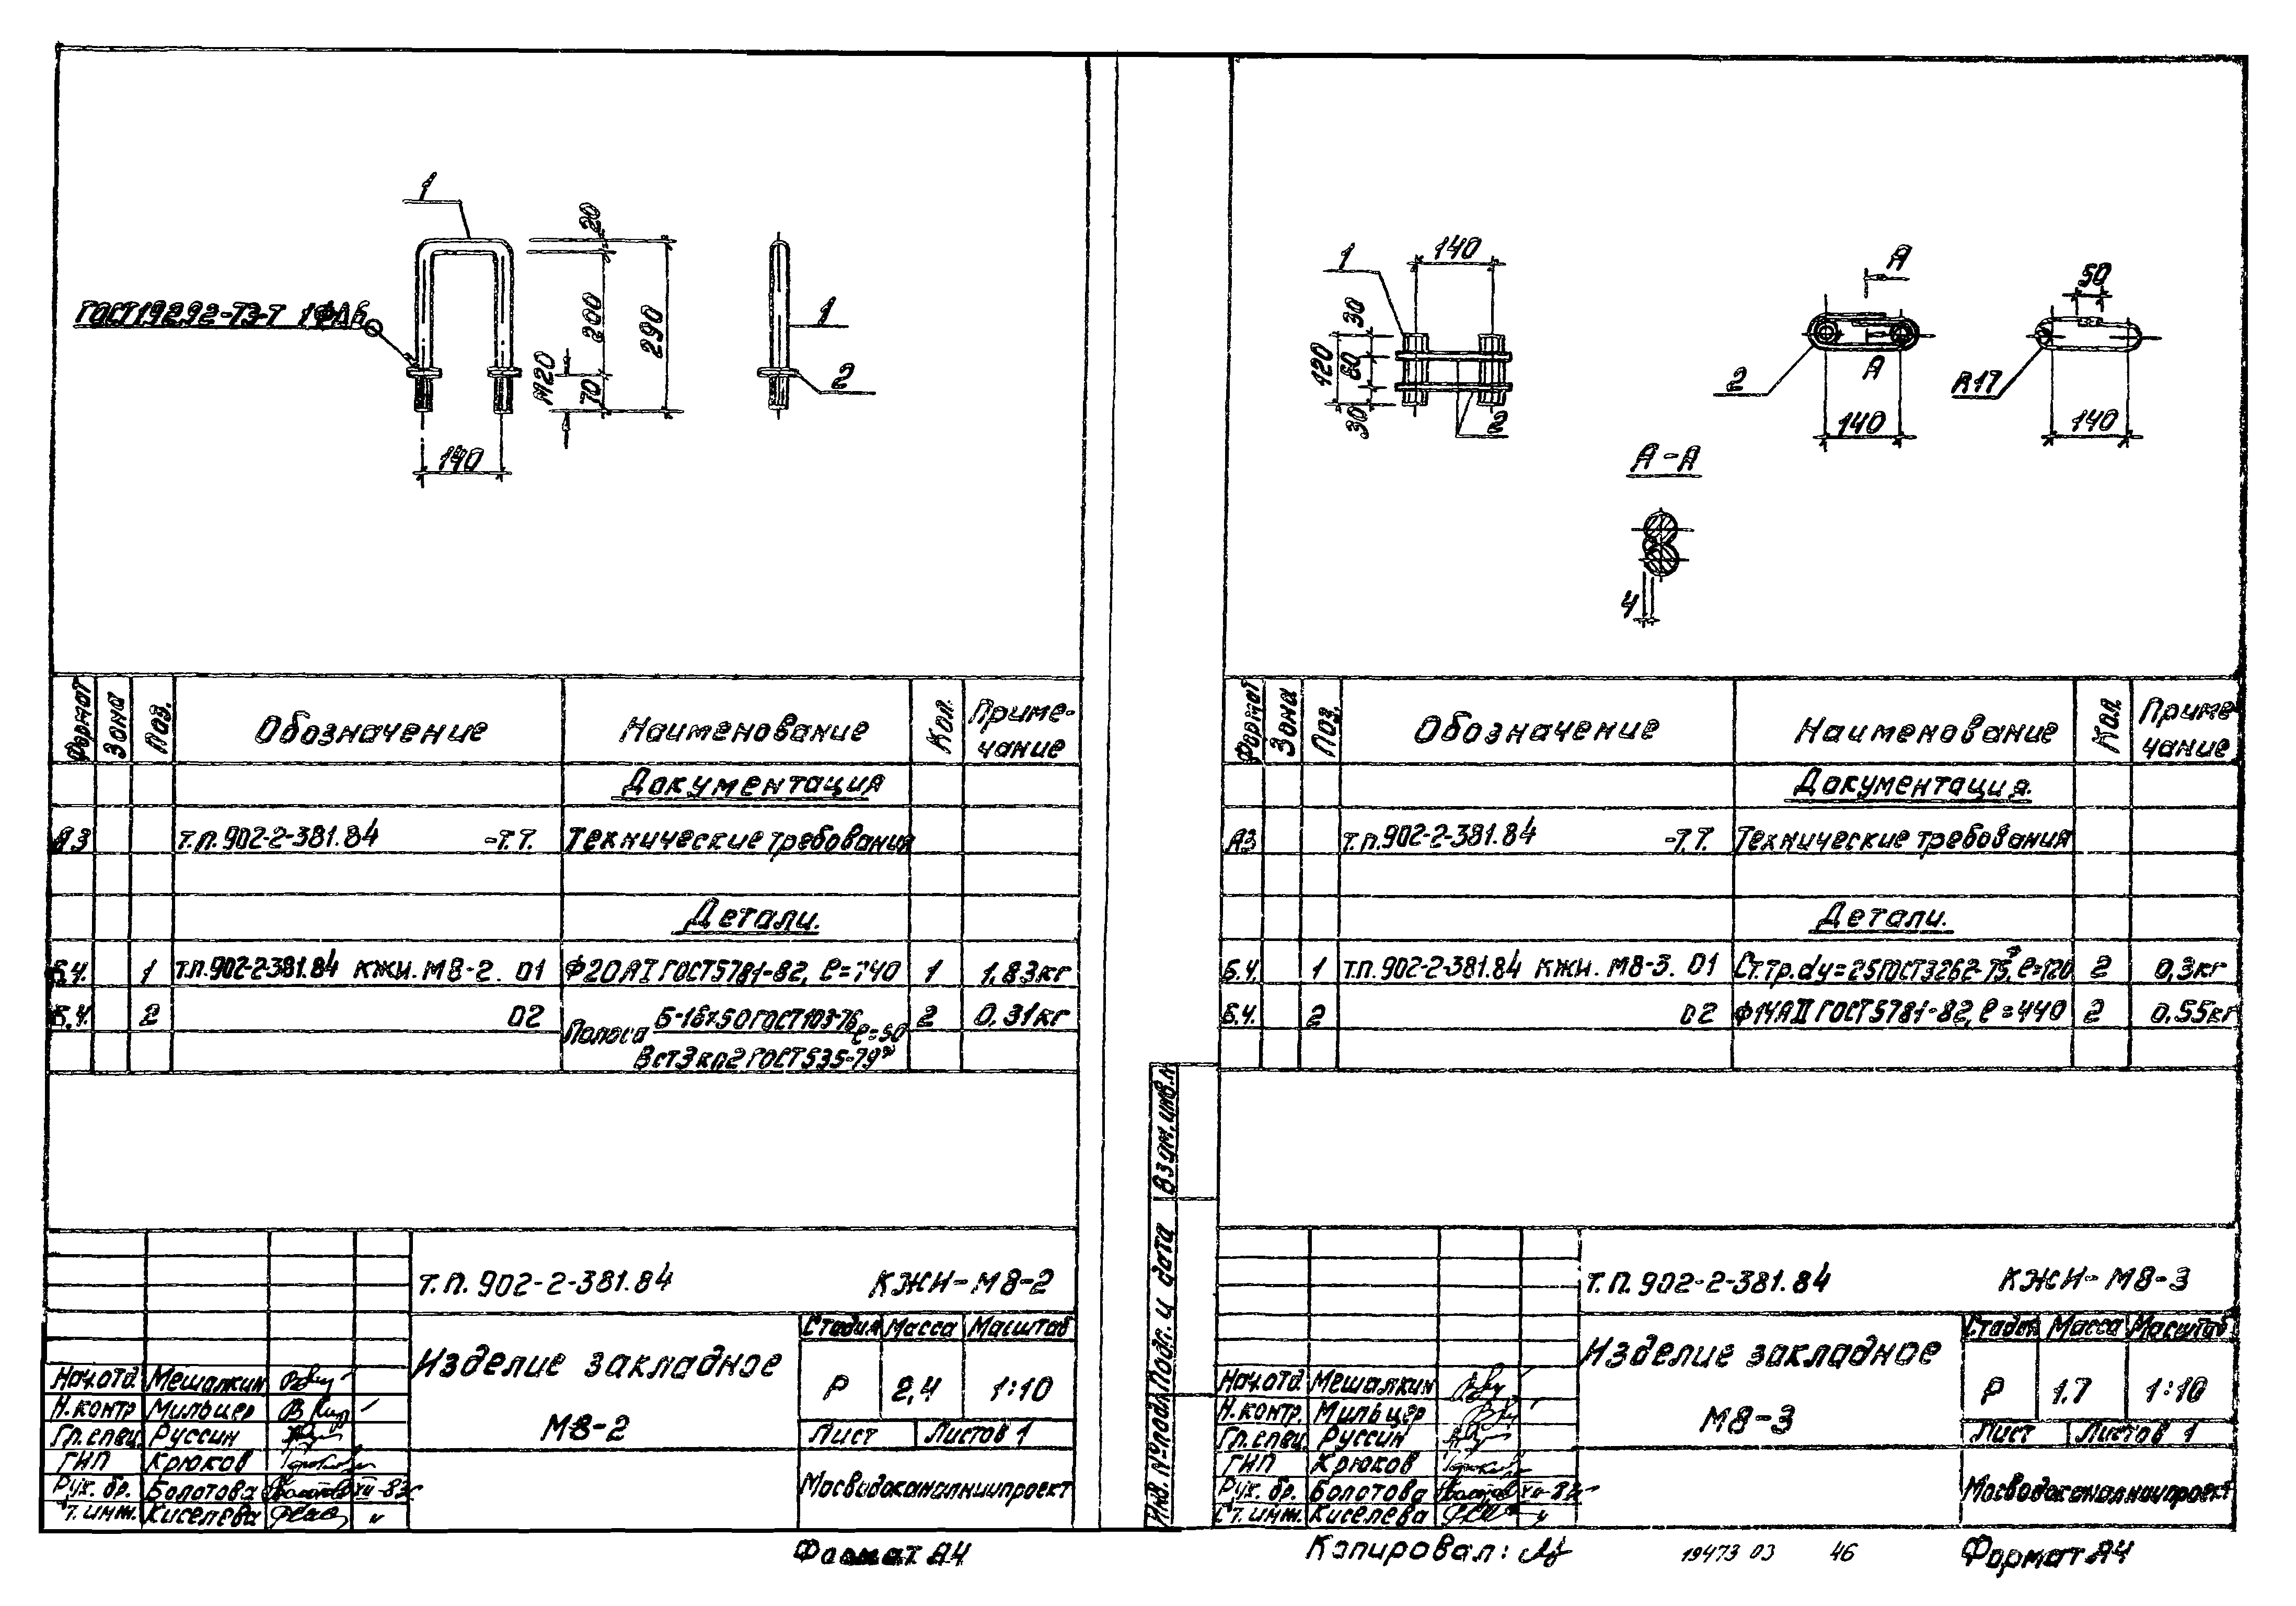 1
ГОСТ 19292-73-Т 1ФΔ6
20
200
290
М20
70
140
1
2
Формат Зона Поз. Обозначение Наименование Кол. Приме-
чание
Документация
А3 т.п. 902-2-381.84 -т.т. Технические требования
Детали.
Б.Ч. 1 т.п. 902-2-381.84 КЖИ.М8-2. 01 Ф20АI ГОСТ 5781-82, ℓ=740 1 1,83кг
Б.Ч. 2 02 Полоса Б-16х50 ГОСТ 103-76 ℓ=50 2 0,31кг
ВСт3кп2 ГОСТ 535-79*
т.п. 902-2-381.84 КЖИ-М8-2
Изделие закладное
М8-2
Стадия Масса Масштаб
Р 2,4 1:10
Лист Листов 1
Мосводоканалниипроект
Нач.отд. Мешалкин
Н.контр. Мильцер
Гл.спец. Руссин
ГИП Крюков
Рук. бр. Болотова XII-83г
Ст.инж. Киселева "
Формат А4
1
140
30
120
60
30
2
А
2
А
140
50
R17
140
А-А
4
Формат Зона Поз. Обозначение Наименование Кол. Приме-
чание
Документация.
А3 т.п. 902-2-381.84 -т.т. Технические требования
Детали.
Б.Ч. 1 т.п. 902-2-381.84 КЖИ.М8-3. 01 Ст.тр.dу=25 ГОСТ 3262-75*, ℓ=120 2 0,3кг
Б.Ч. 2 02 Ф14АII ГОСТ 5781-82, ℓ=440 2 0,55кг
Взам.инв.№
Подп. и дата
Инв. №подл.
т.п. 902-2-381.84 КЖИ-М8-3
Изделие закладное
М8-3
Стадия Масса Масштаб
Р 1.7 1:10
Лист Листов 1
Мосводоканалниипроект
Нач.отд. Мешалкин
Н.контр. Мильцер
Гл.спец. Руссин
ГИП Крюков
Рук. бр. Болотова XII-83г
Ст.инж. Киселева "
Копировал: 19473 03 46 Формат А4